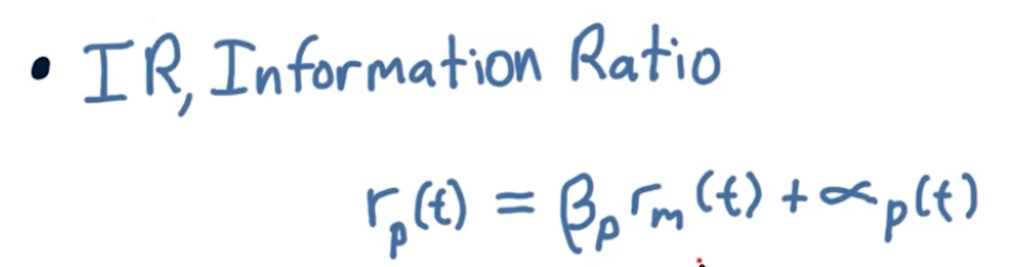 • IR, Information Ratio
rₚ(t) = βₚ rₘ(t) + αₚ(t)